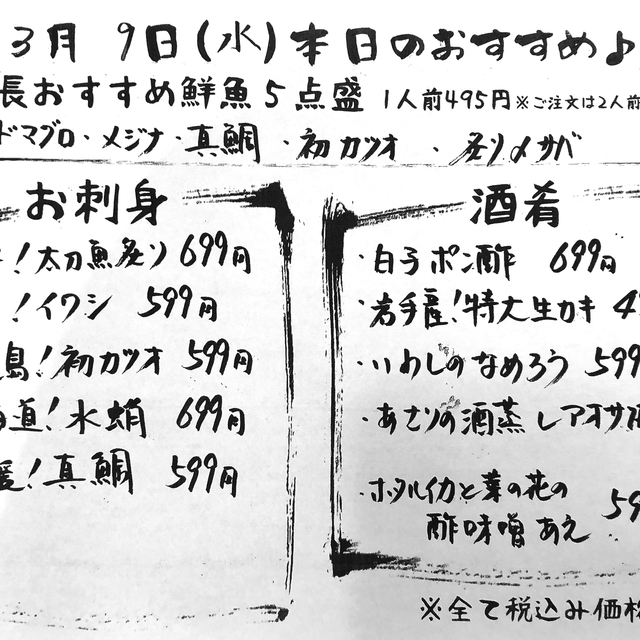 3月 9日(水)本日のおすすめ♪
長おすすめ鮮魚5点盛 1人前495円※ご注文は2人前
ドマグロ・メジナ・真鯛・初カツオ・炙りメサバ
お刺身
!太刀魚炙り 699円
!イワシ 599円
島!初カツオ 599円
道!水蛸 699円
媛!真鯛 599円
酒肴
・白子ポン酢 699円
・岩手産!特大生カキ 4
・いわしのなめろう 599
・あさりの酒蒸しアオサ
・ホタルイカと菜の花の
酢味噌あえ 59
※全て税込み価格